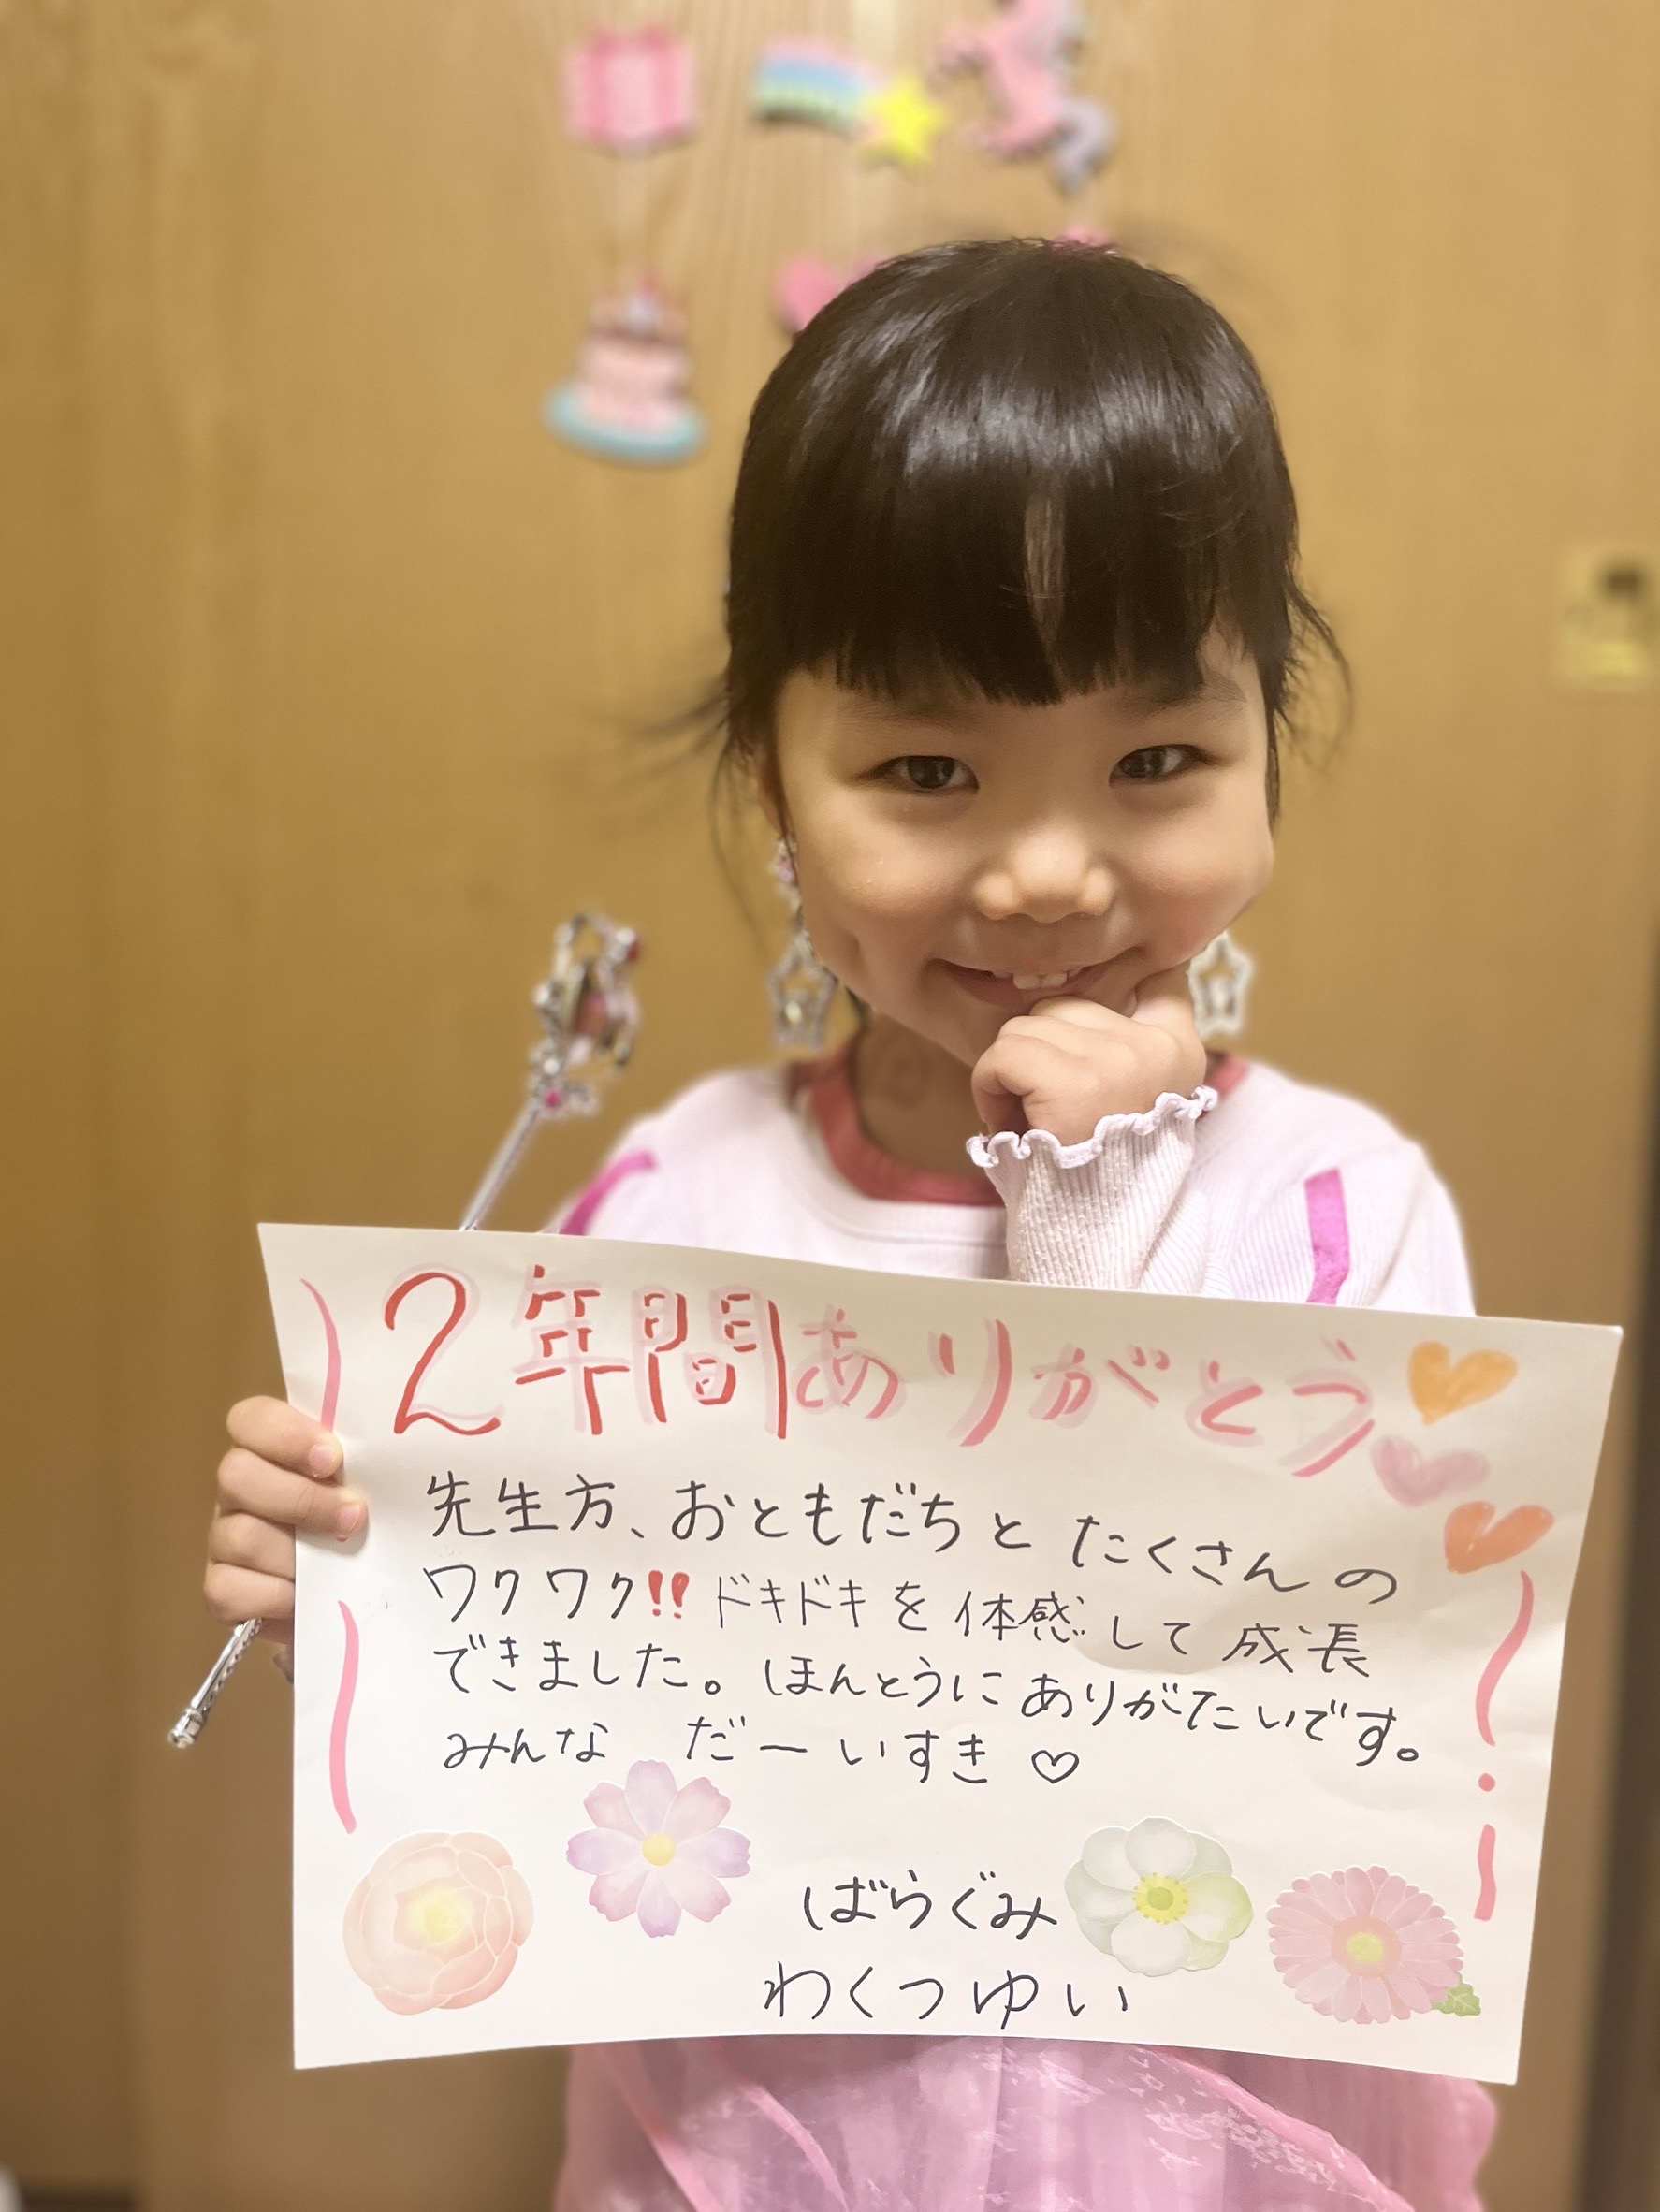 2年間ありがとう
先生方、おともだちとたくさんの
ワクワク!!ドキドキを体感して成長
できました。ほんとうにありがたいです。
みんな だーいすき♡
ばらぐみ
わくつゆい